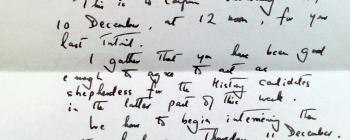 This is to confirm
10 December, at 12 noon, for your
last tutorial.
I gather that you have been good
enough to agree to act as
shepherdess for the History candidates
in the latter part of this week.
We have to begin interviewing them
Thursday 11 December